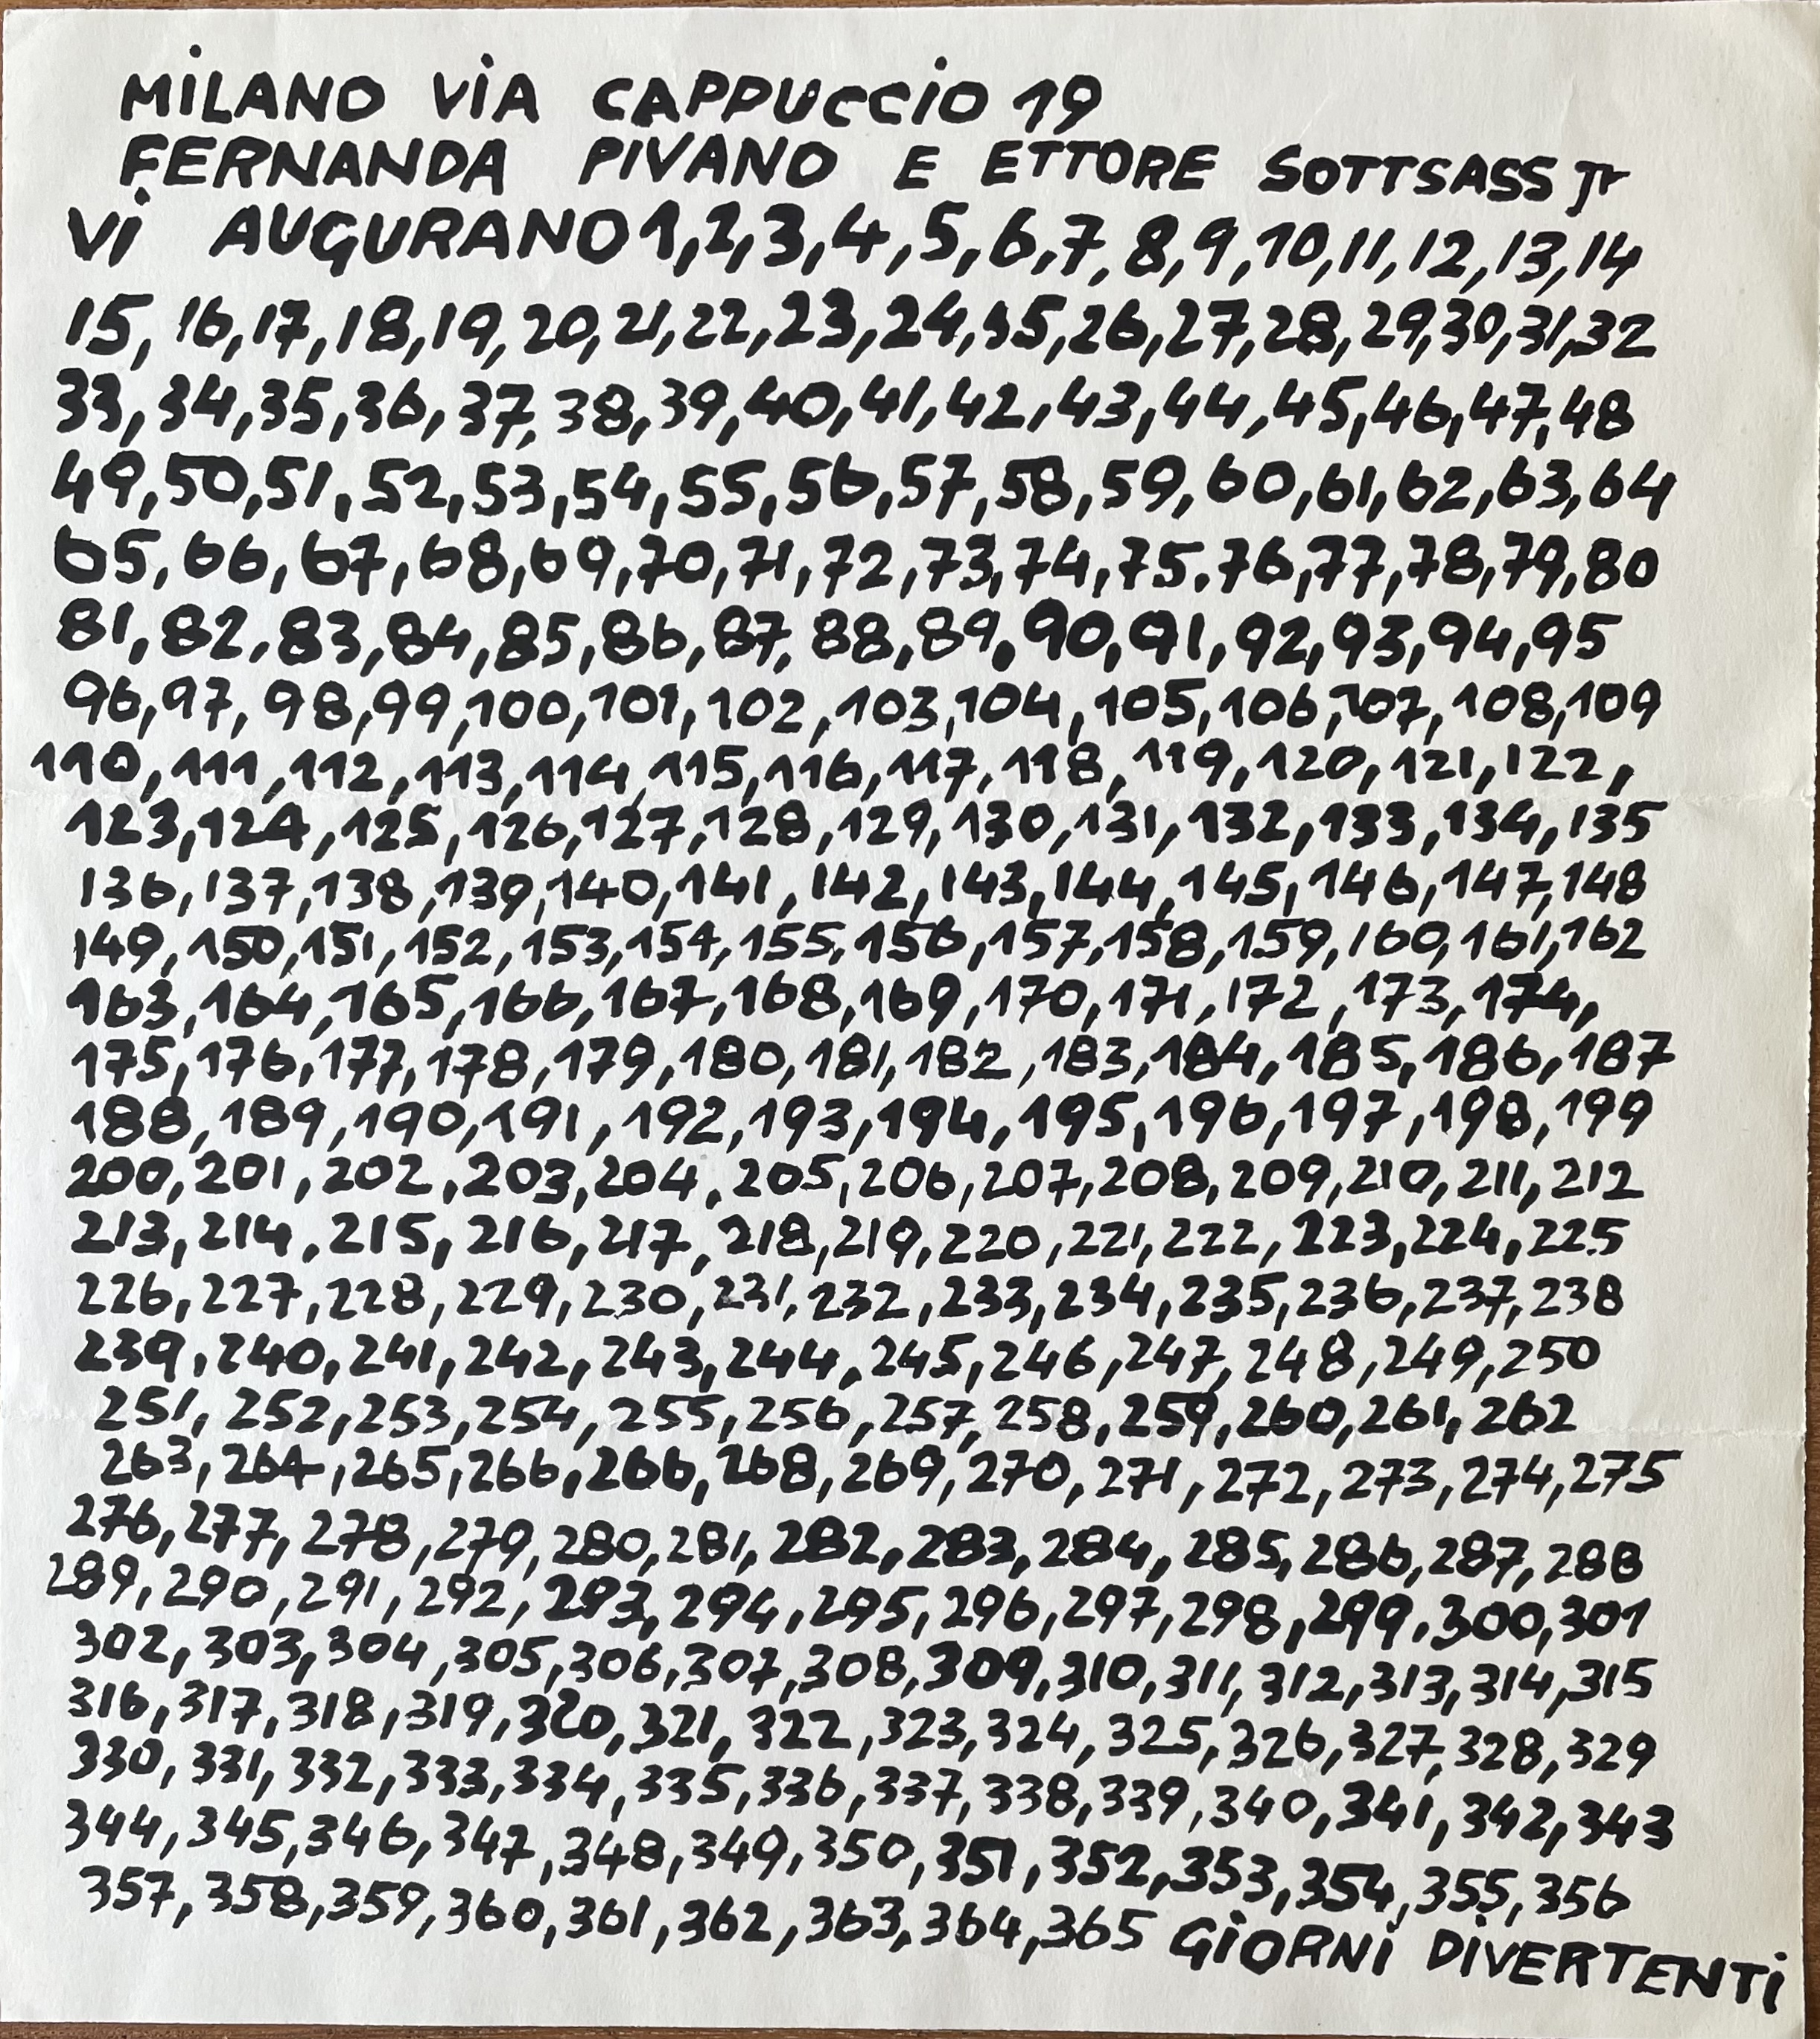 MiLANO ViA CAPPUCCiO 19
FERNANDA PIVANO E ETTORE SOTTSASS Jr
Vi AUGURANO 1,2,3,4,5,6,7,8,9,10,11,12,13,14
15,16,17,18,19,20,21,22,23,24,35,26,27,28,29,30,31,32
33,34,35,36,37,38,39,40,41,42,43,44,45,46,47,48
49,50,51,52,53,54,55,56,57,58,59,60,61,62,63,64
65,66,67,68,69,70,71,72,73,74,75.76,77,78,79,80
81,82,83,84,85,86,87,88,89,90,91,92,93,94,95
96,97,98,99,100,101,102,103,104,105,106,107,108,109
110,111,112,113,114,115,116,117,118,119,120,121,122,
123,124,125,126,127,128,129,130,131,132,133,134,135
136,137,138,139,140,141,142,143,144,145,146,147,148
149,150,151,152,153,154,155,156,157,158,159,160,161,162
163,164,165,166,167,168,169,170,171,172,173,174,
175,176,177,178,179,180,181,182,183,184,185,186,187
188,189,190,191,192,193,194,195,196,197,198,199
200,201,202,203,204,205,206,207,208,209,210,211,212
213,214,215,216,217,218,219,220,221,222,223,224,225
226,227,228,229,230,231,232,233,234,235,236,237,238
239,240,241,242,243,244,245,246,247,248,249,250
251,252,253,254,255,256,257,258,259,260,261,262
263,264,265,266,266,268,269,270,271,272,273,274,275
276,277,278,279,280,281,282,283,284,285,286,287,288
289,290,291,292,293,294,295,296,297,298,299,300,301
302,303,304,305,306,307,308,309,310,311,312,313,314,315
316,317,318,319,320,321,322,323,324,325,326,327,328,329
330,331,332,333,334,335,336,337,338,339,340,341,342,343
344,345,346,347,348,349,350,351,352,353,354,355,356
357,358,359,360,361,362,363,364,365 GiORNi DiVERTENTi